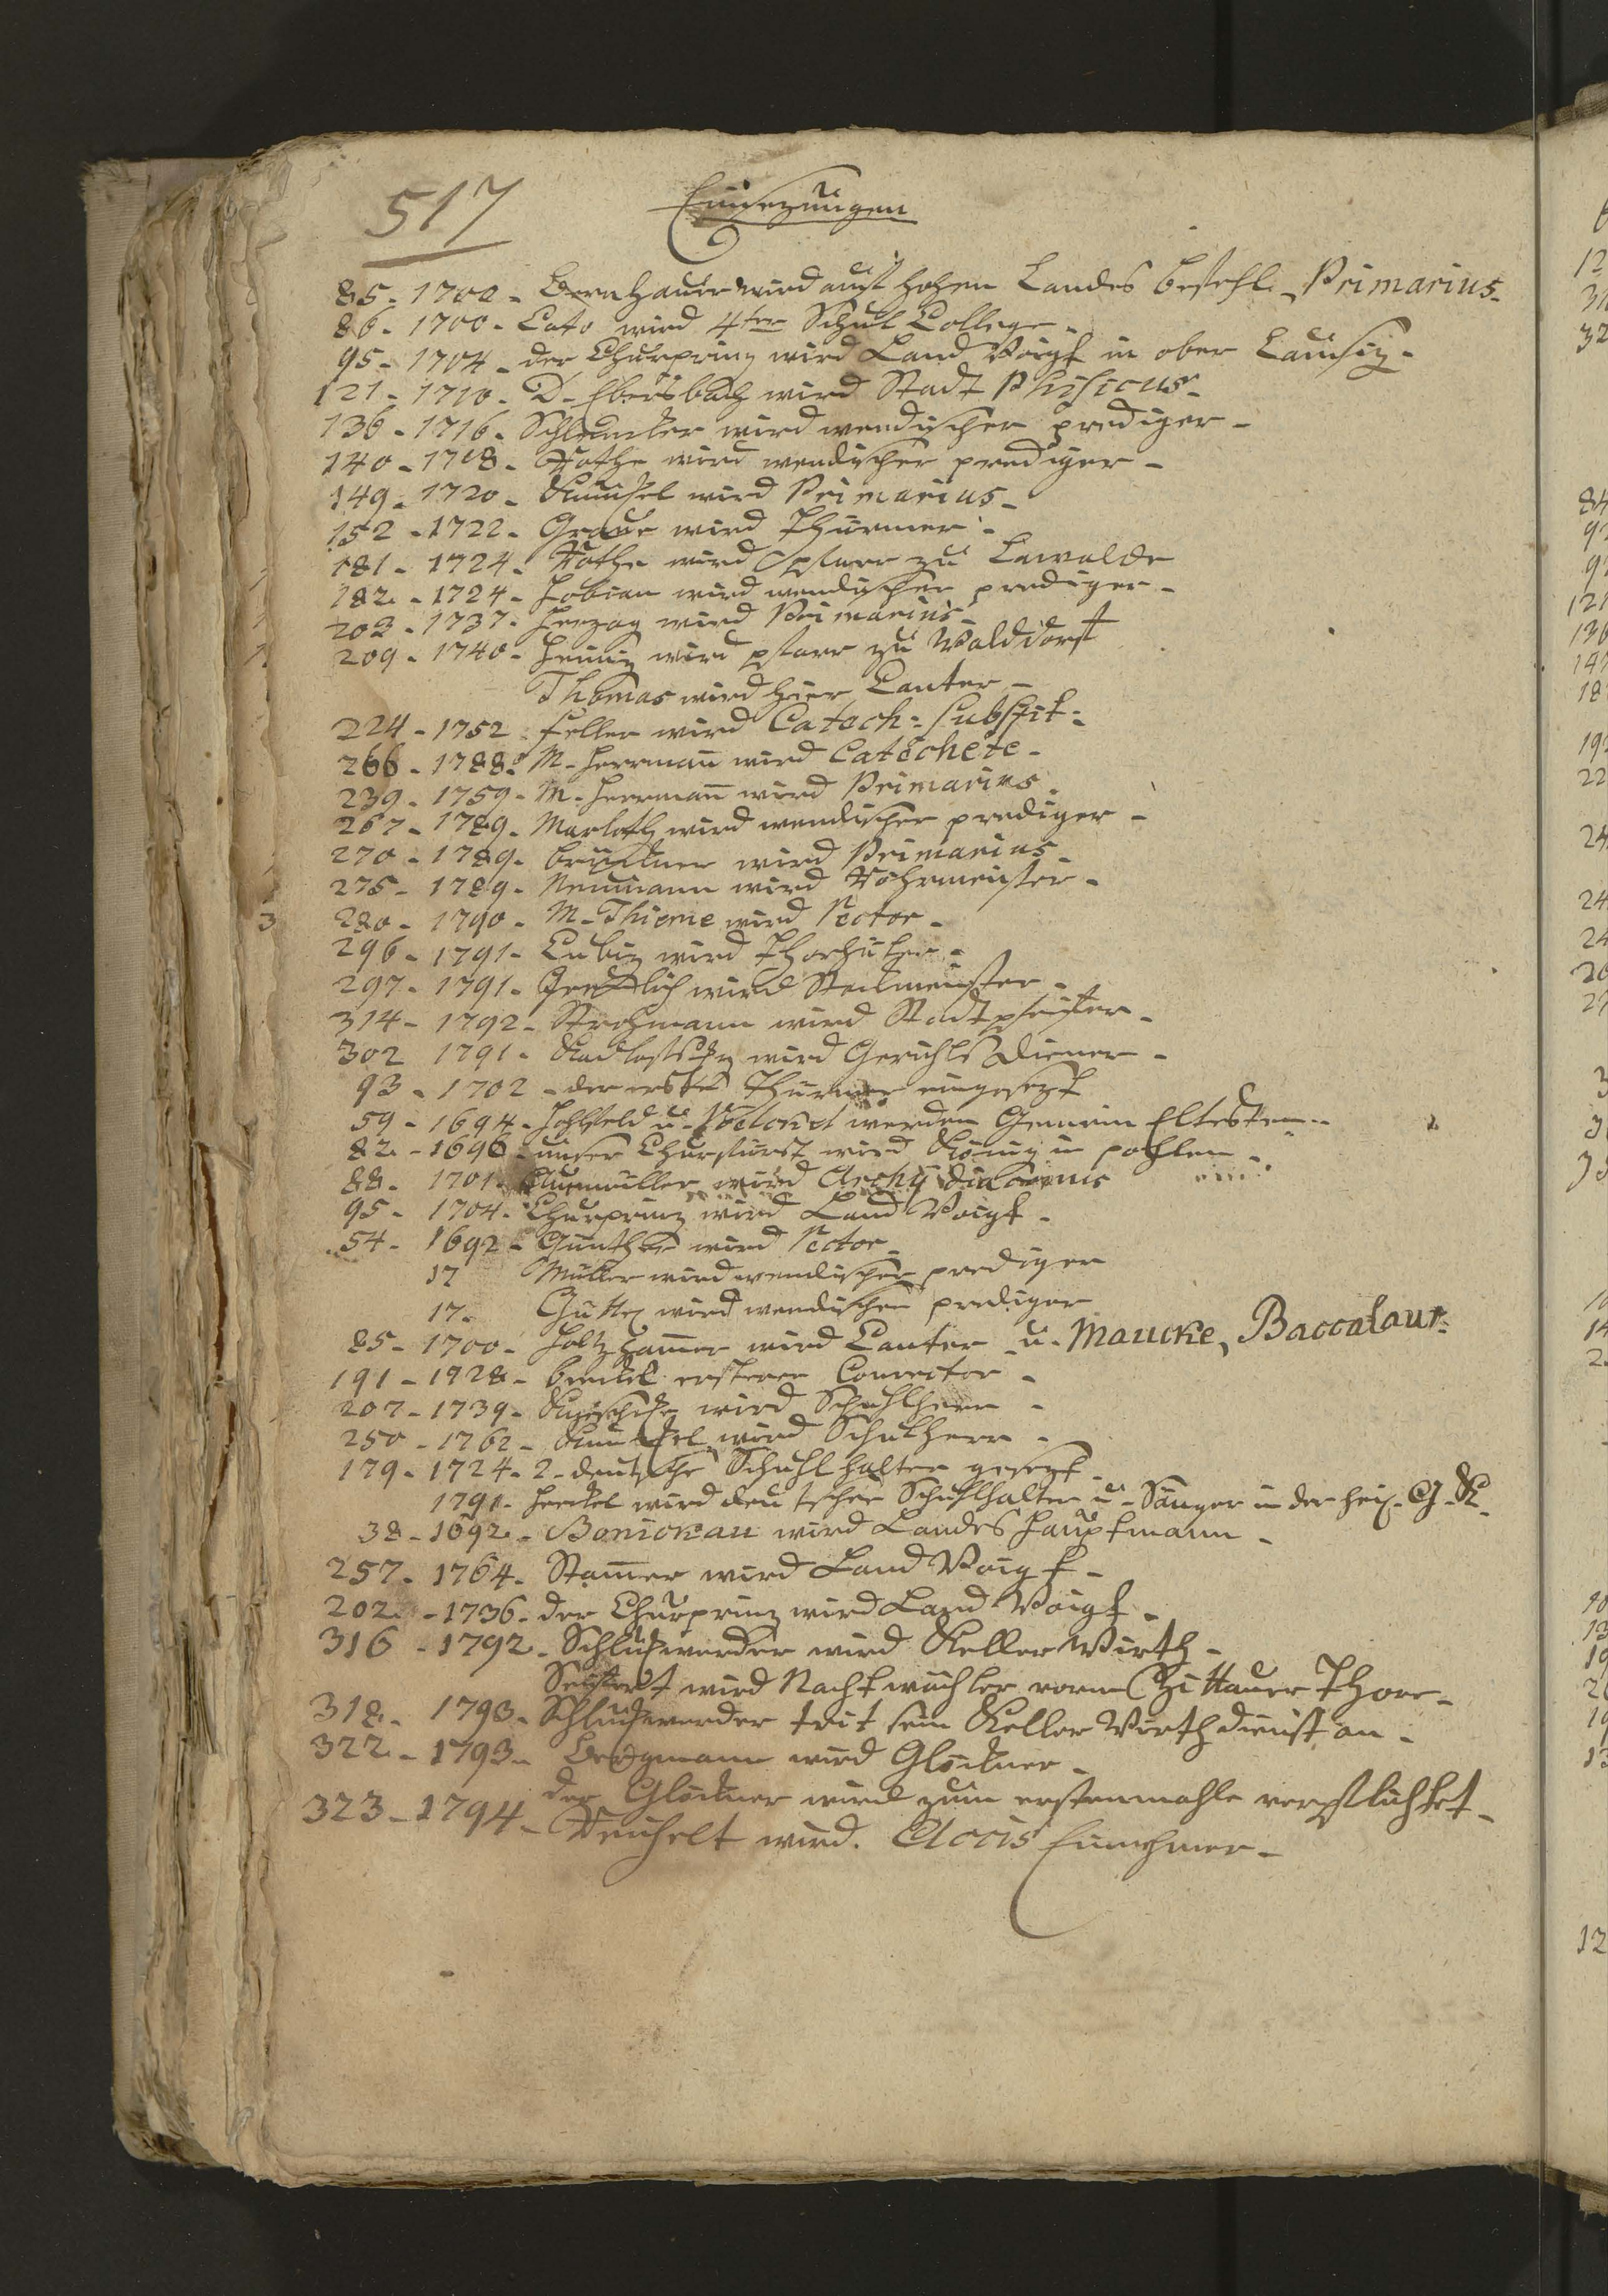 517
Einsezungen
85 - 1700 - Bernhauer wird auf hohen Landes befehl - Primarius -
86 - 1700 - Cato wird 4ter Schul College -
95 - 1704 - der Churprinz wird Land Voigt in ober Lausiz -
121 - 1710 - D - Ebersbach wird Stadt Phisicus -
136 - 1716 - wird wendischer prediger -
140 - 1718 - Rothe wird wendischer prediger -
149 - 1720 - wird Primarius -
152 - 1722 - Graue wird Thürmer -
181 - 1724 - Rothe wird pfarr zu Lawalde
182 - 1724 - Fobian wird wendischer prediger -
203 - 1737 - Herzog wird Primarius -
209 - 1740 - Heiniz wird pfarr zu Walddorf
Thomas wird hier Canter -
224 - 1752 feller wird Catech: substit:
266 - 1788 - M - Herrmañ wird Catechete -
239 - 1759 - M - Heermañ wird Primarius -
267 - 1789 - Marloth wird wendischer prediger -
270 - 1789 - brückner wird Primarius -
275 - 1789 - Neumann wird Röhrmeister -
3 280 - 1790 - M - Thieme wird Rector -
296 - 1791 - Lubiz wird Thorhüter -
297 - 1791 - wird
314 - 1792 - Strohmann wird Stadtpfeifer -
302 1791 - wird Gerichts Diener -
93 - 1702 - der erste Thürmer eingesezt
59 - 1694 - Hohlfeld u - werden Gemein Eltesten -
82 - 1696 - unser Churfürst wird König in pohlen -
88 - 1701 - wird Archy diaconus
95 - 1704 - Churprinz wird Land Voigt -
54 - 1692 - Günther wird Rector -
17 Müller wird wendischer prediger
17 - wird wendischer prediger
85 - 1700 - Holtzhamer wird Canter u - Maucke, Baccalaur:
191 - 1728 - ersterer Conrector -
207 - 1739 - wird Schuhlherr -
250 - 1762 - wird Schulherr -
179 - 1724 - 2 - deutsche Schuhlhalter gesezt -
1791 - Henkel wird deutscher Schuhlhalter u - Sänger in der heil - G - K -
38 - 1692 - Bonickau wird Landes Hauptmann -
257 - 1764 - Stamer wird Land Voigt -
202 - 1736 - der Churprinz wird Land Voigt -
316 - 1792 - Schluckwerder wird Keller Wirth -
Seifert wird Nachtwächter vorm Zittauer Thore -
318 - 1793 - Schluckwerder trit sein Keller Wirth dienst an -
322 - 1793 - Bergmann wird Glöckner -
der Glöckner wird zum erstenmahle verpflichtet -
323 - 1794 - wird Accis Einehmer -